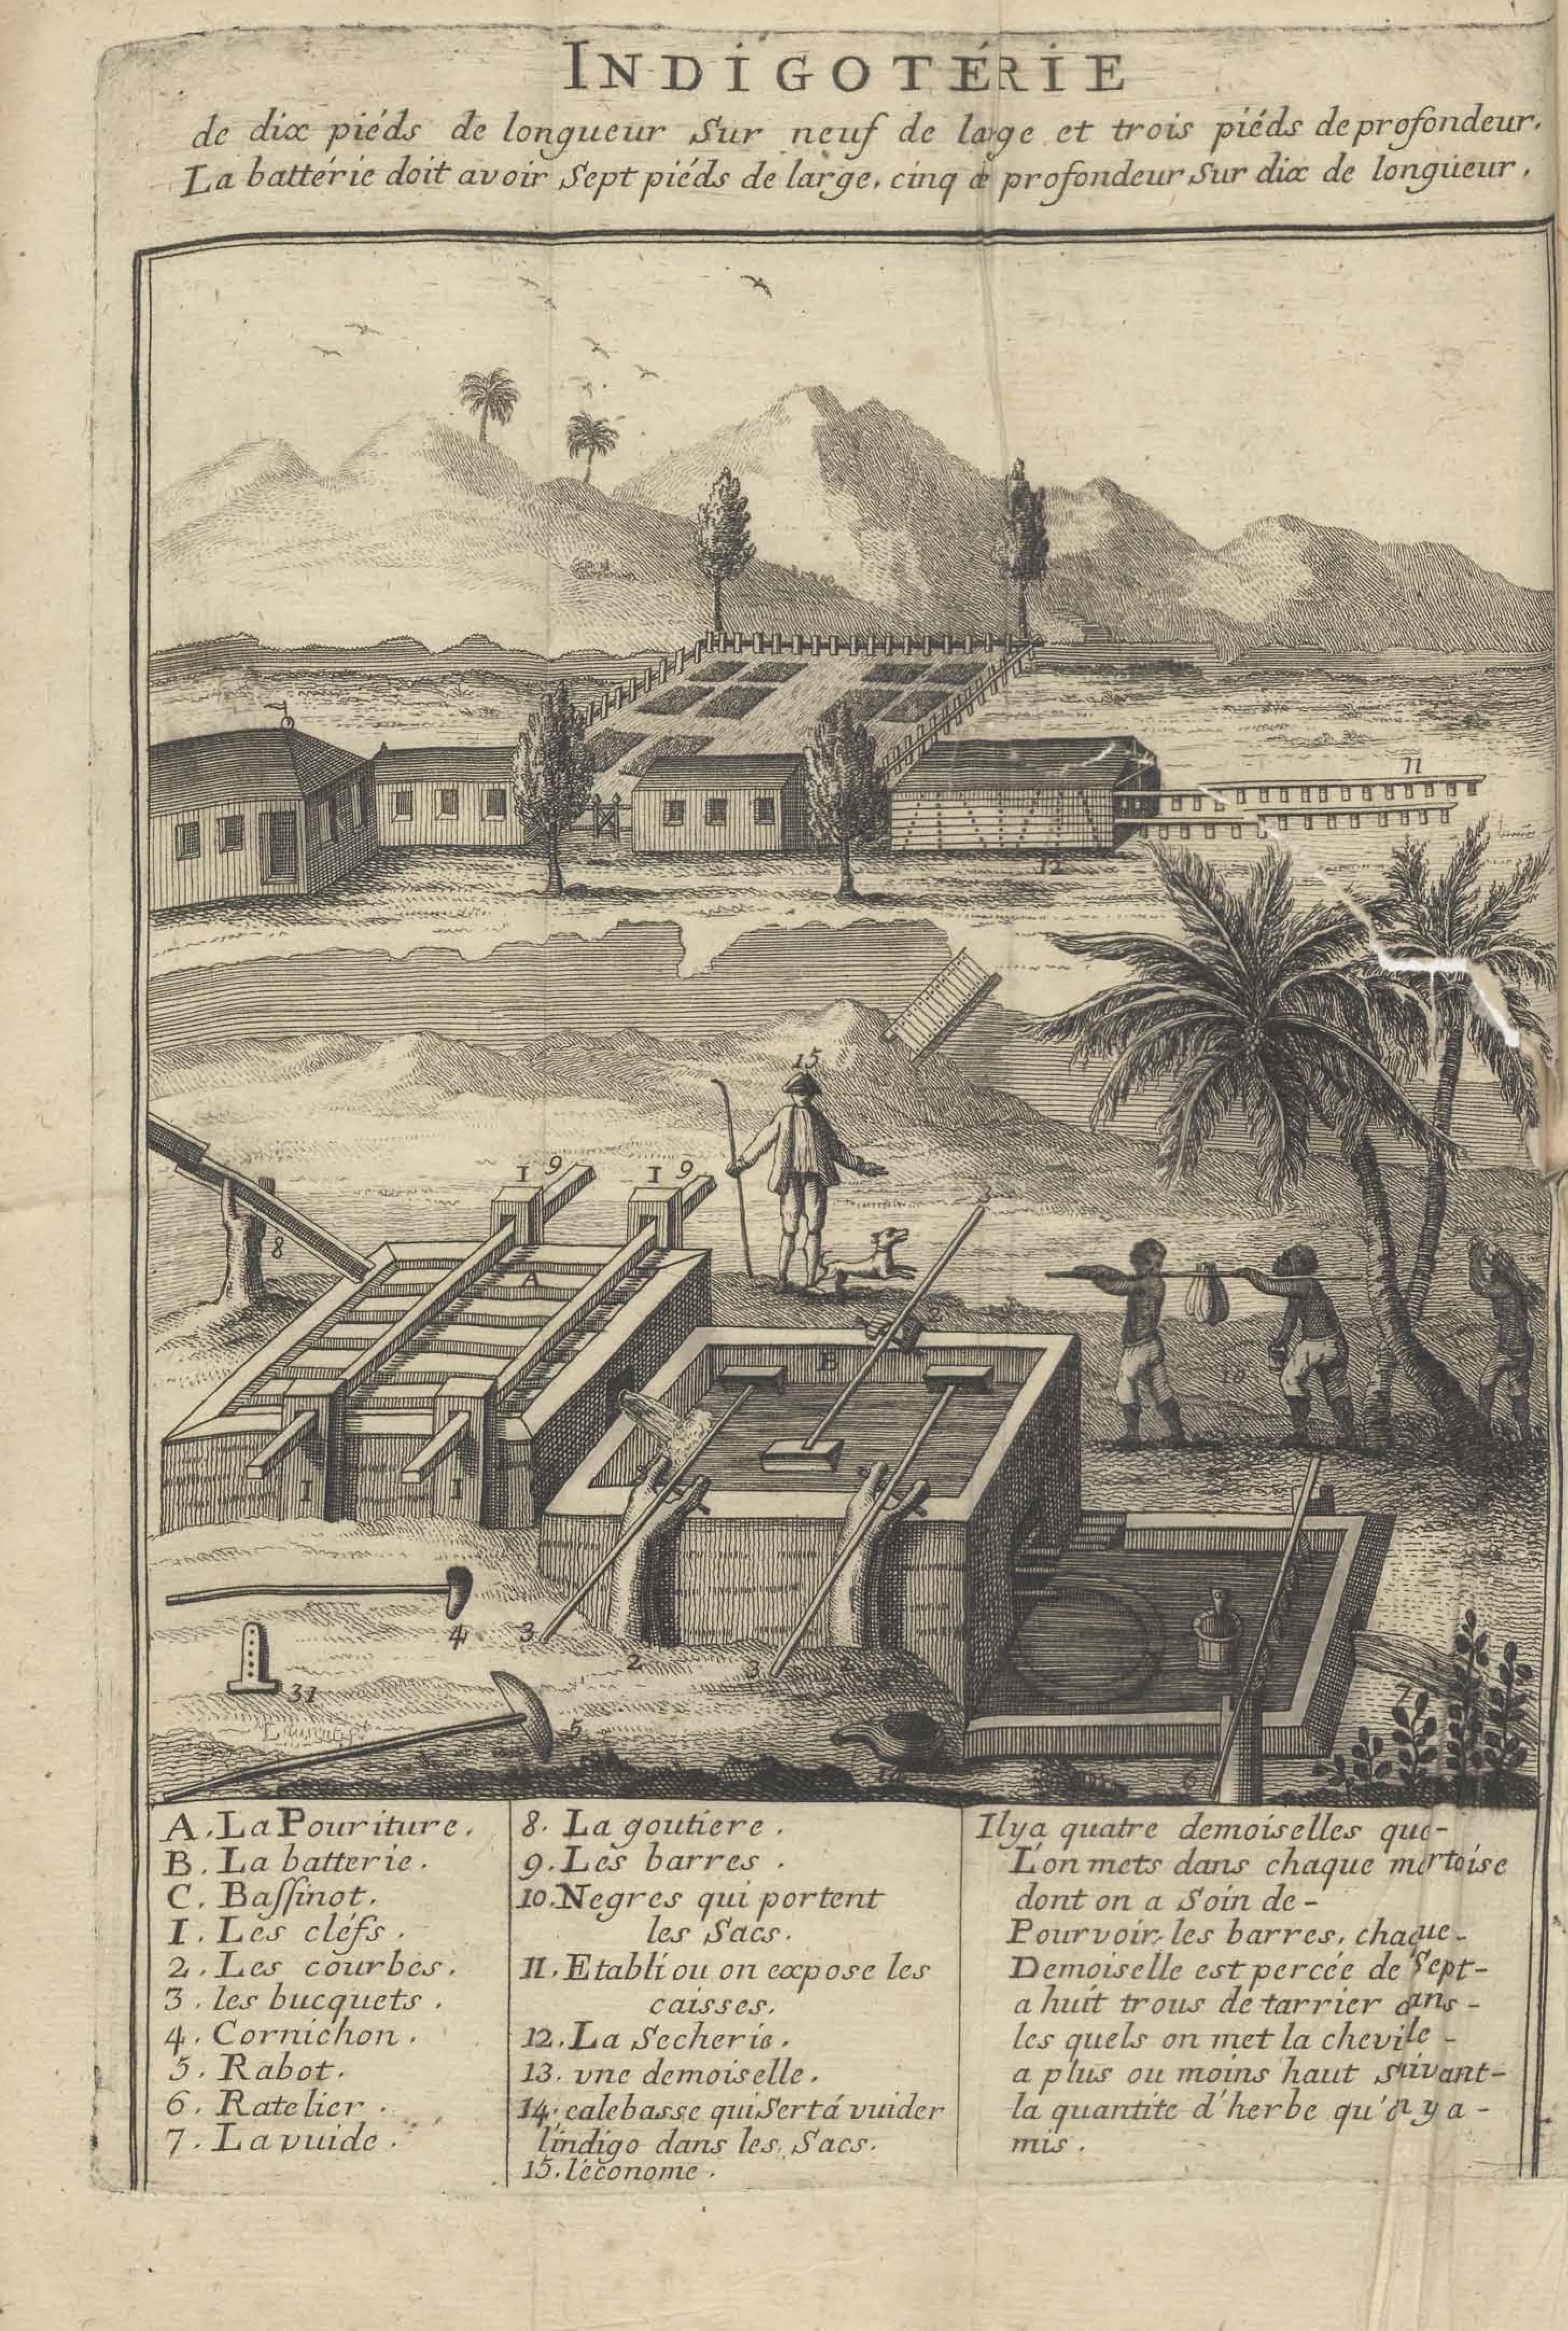 INDIGOTÉRIE
de dix piéds de longueur Sur neuf de large et trois piéds de profondeur.
La battérie doit avoir Sept piéds de large, cinq de profondeur Sur dix de longueur.
11
12
15
1 9
1 9
8
A
3
2
B
10
1
1
4
3
2
3
2
31
5
7
14
6
A. La Pouriture.
B. La batterie.
C. Baſſinot.
1. Les cléfs.
2. Les courbes.
3. les bucquets.
4. Cornichon.
5. Rabot.
6. Ratelier.
7. La vuide.
8. La goutiere.
9. Les barres.
10. Negres qui portent
les Sacs.
11. Etabli ou on expose les
caisses.
12. La Secherie.
13. vne demoiselle.
14. calebasse qui Sert á vuider
l'indigo dans les Sacs.
15. l'économe.
Il y a quatre demoiselles que-
L'on mets dans chaque mortoise
dont on a Soin de-
Pourvoir les barres, chaque-
Demoiselle est percée de Sept-
a huit trous de tarrier dans-
les quels on met la cheville-
a plus ou moins haut Suivant-
la quantite d'herbe qu'il y a-
mis.